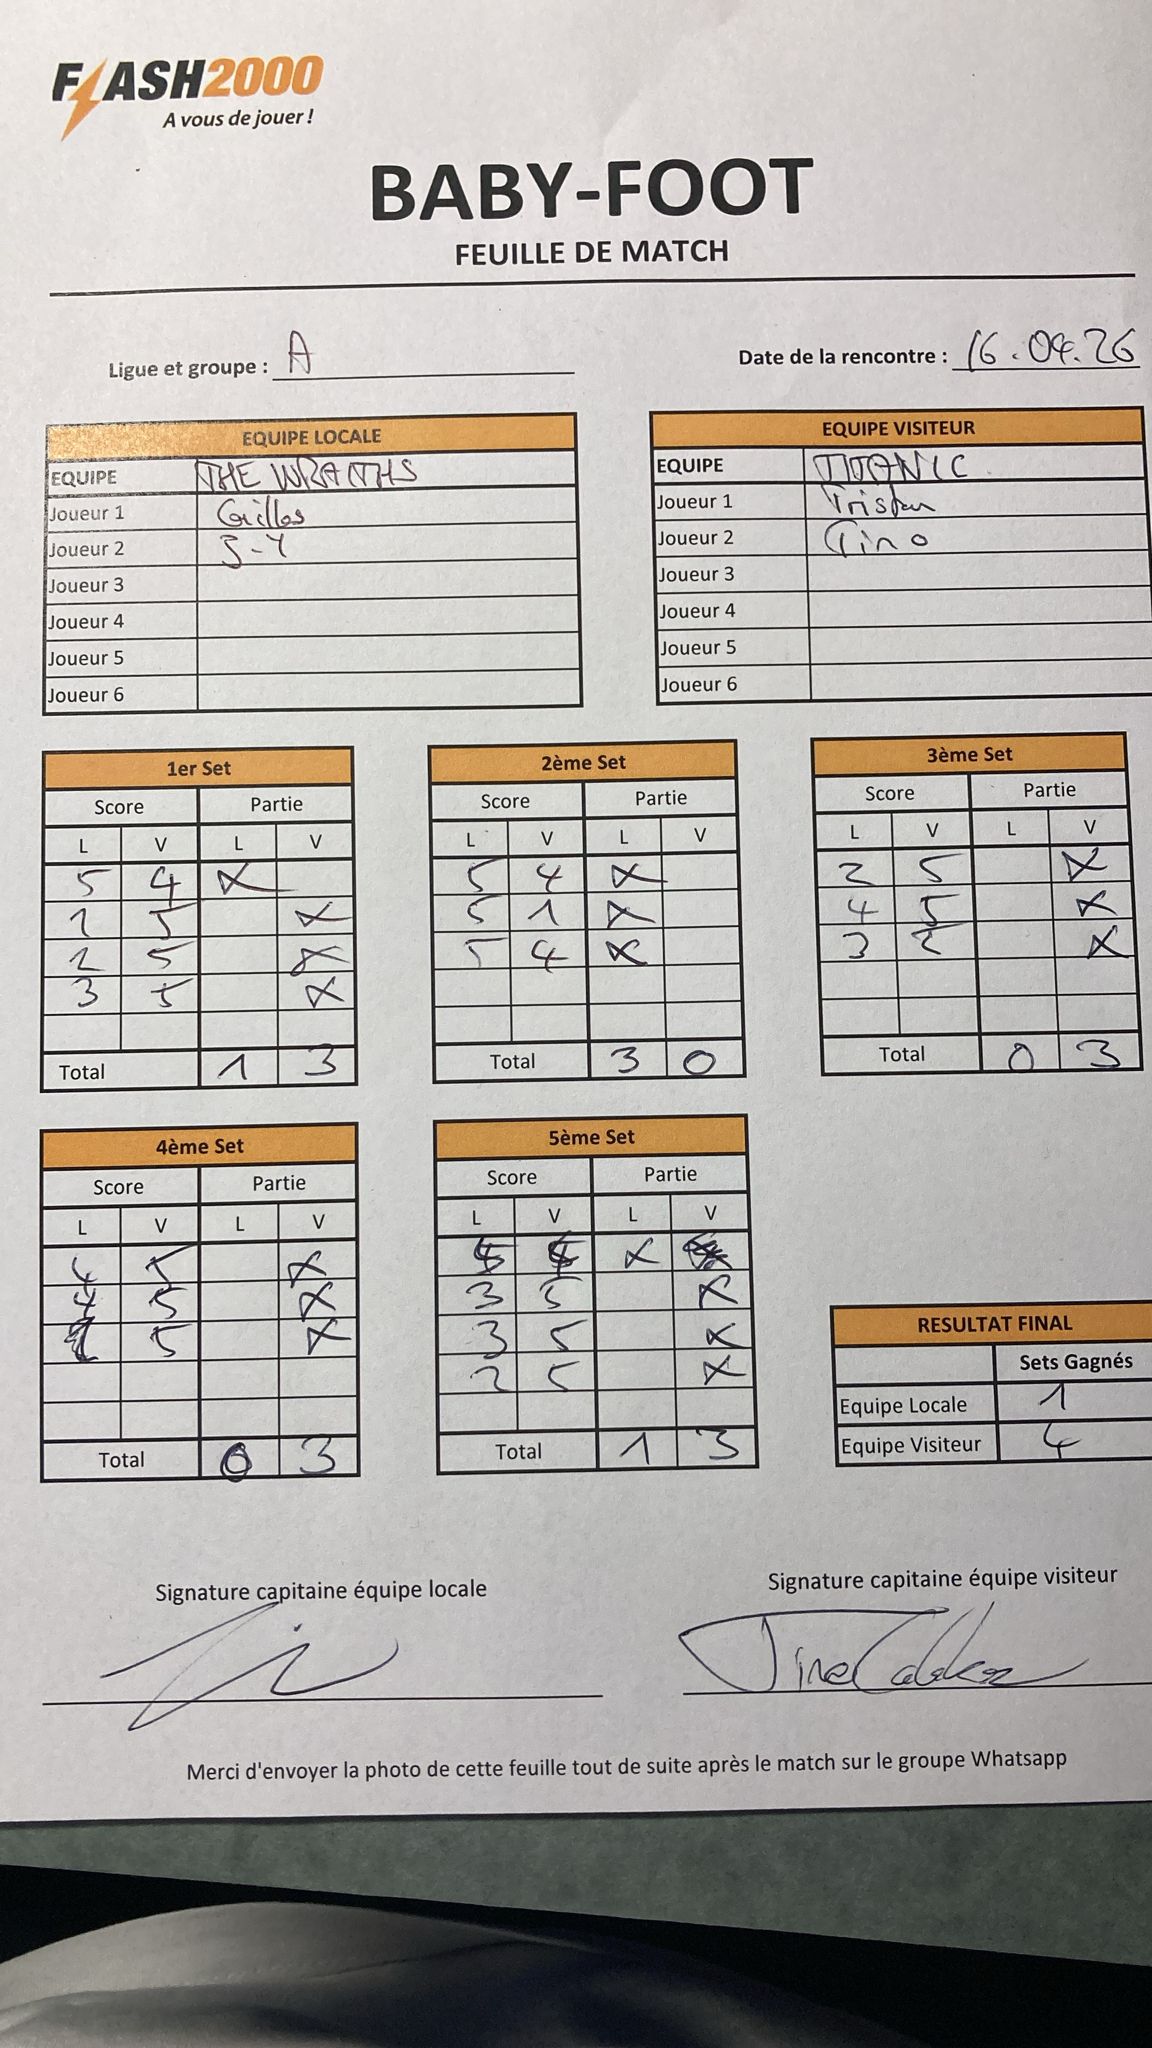 FLASH2000
A vous de jouer !
BABY-FOOT
FEUILLE DE MATCH
Ligue et groupe : A
Date de la rencontre : 16.04.26
EQUIPE LOCALE
EQUIPE THE WRATHS
Joueur 1 Gilles
Joueur 2 J-Y
Joueur 3
Joueur 4
Joueur 5
Joueur 6
EQUIPE VISITEUR
EQUIPE TITANIC
Joueur 1 Tristan
Joueur 2 Tino
Joueur 3
Joueur 4
Joueur 5
Joueur 6
1er Set
Score Partie
L V L V
5 4 X
1 5 X
2 5 X
3 5 X
Total 1 3
2ème Set
Score Partie
L V L V
5 4 X
5 1 X
5 4 X
Total 3 0
3ème Set
Score Partie
L V L V
2 5 X
4 5 X
3 5 X
Total 0 3
4ème Set
Score Partie
L V L V
4 5 X
4 5 X
5 X
Total 0 3
5ème Set
Score Partie
L V L V
5 4 X
3 5 X
3 5 X
2 5 X
Total 1 3
RESULTAT FINAL
Sets Gagnés
Equipe Locale 1
Equipe Visiteur 4
Signature capitaine équipe locale
Signature capitaine équipe visiteur
Merci d'envoyer la photo de cette feuille tout de suite après le match sur le groupe Whatsapp